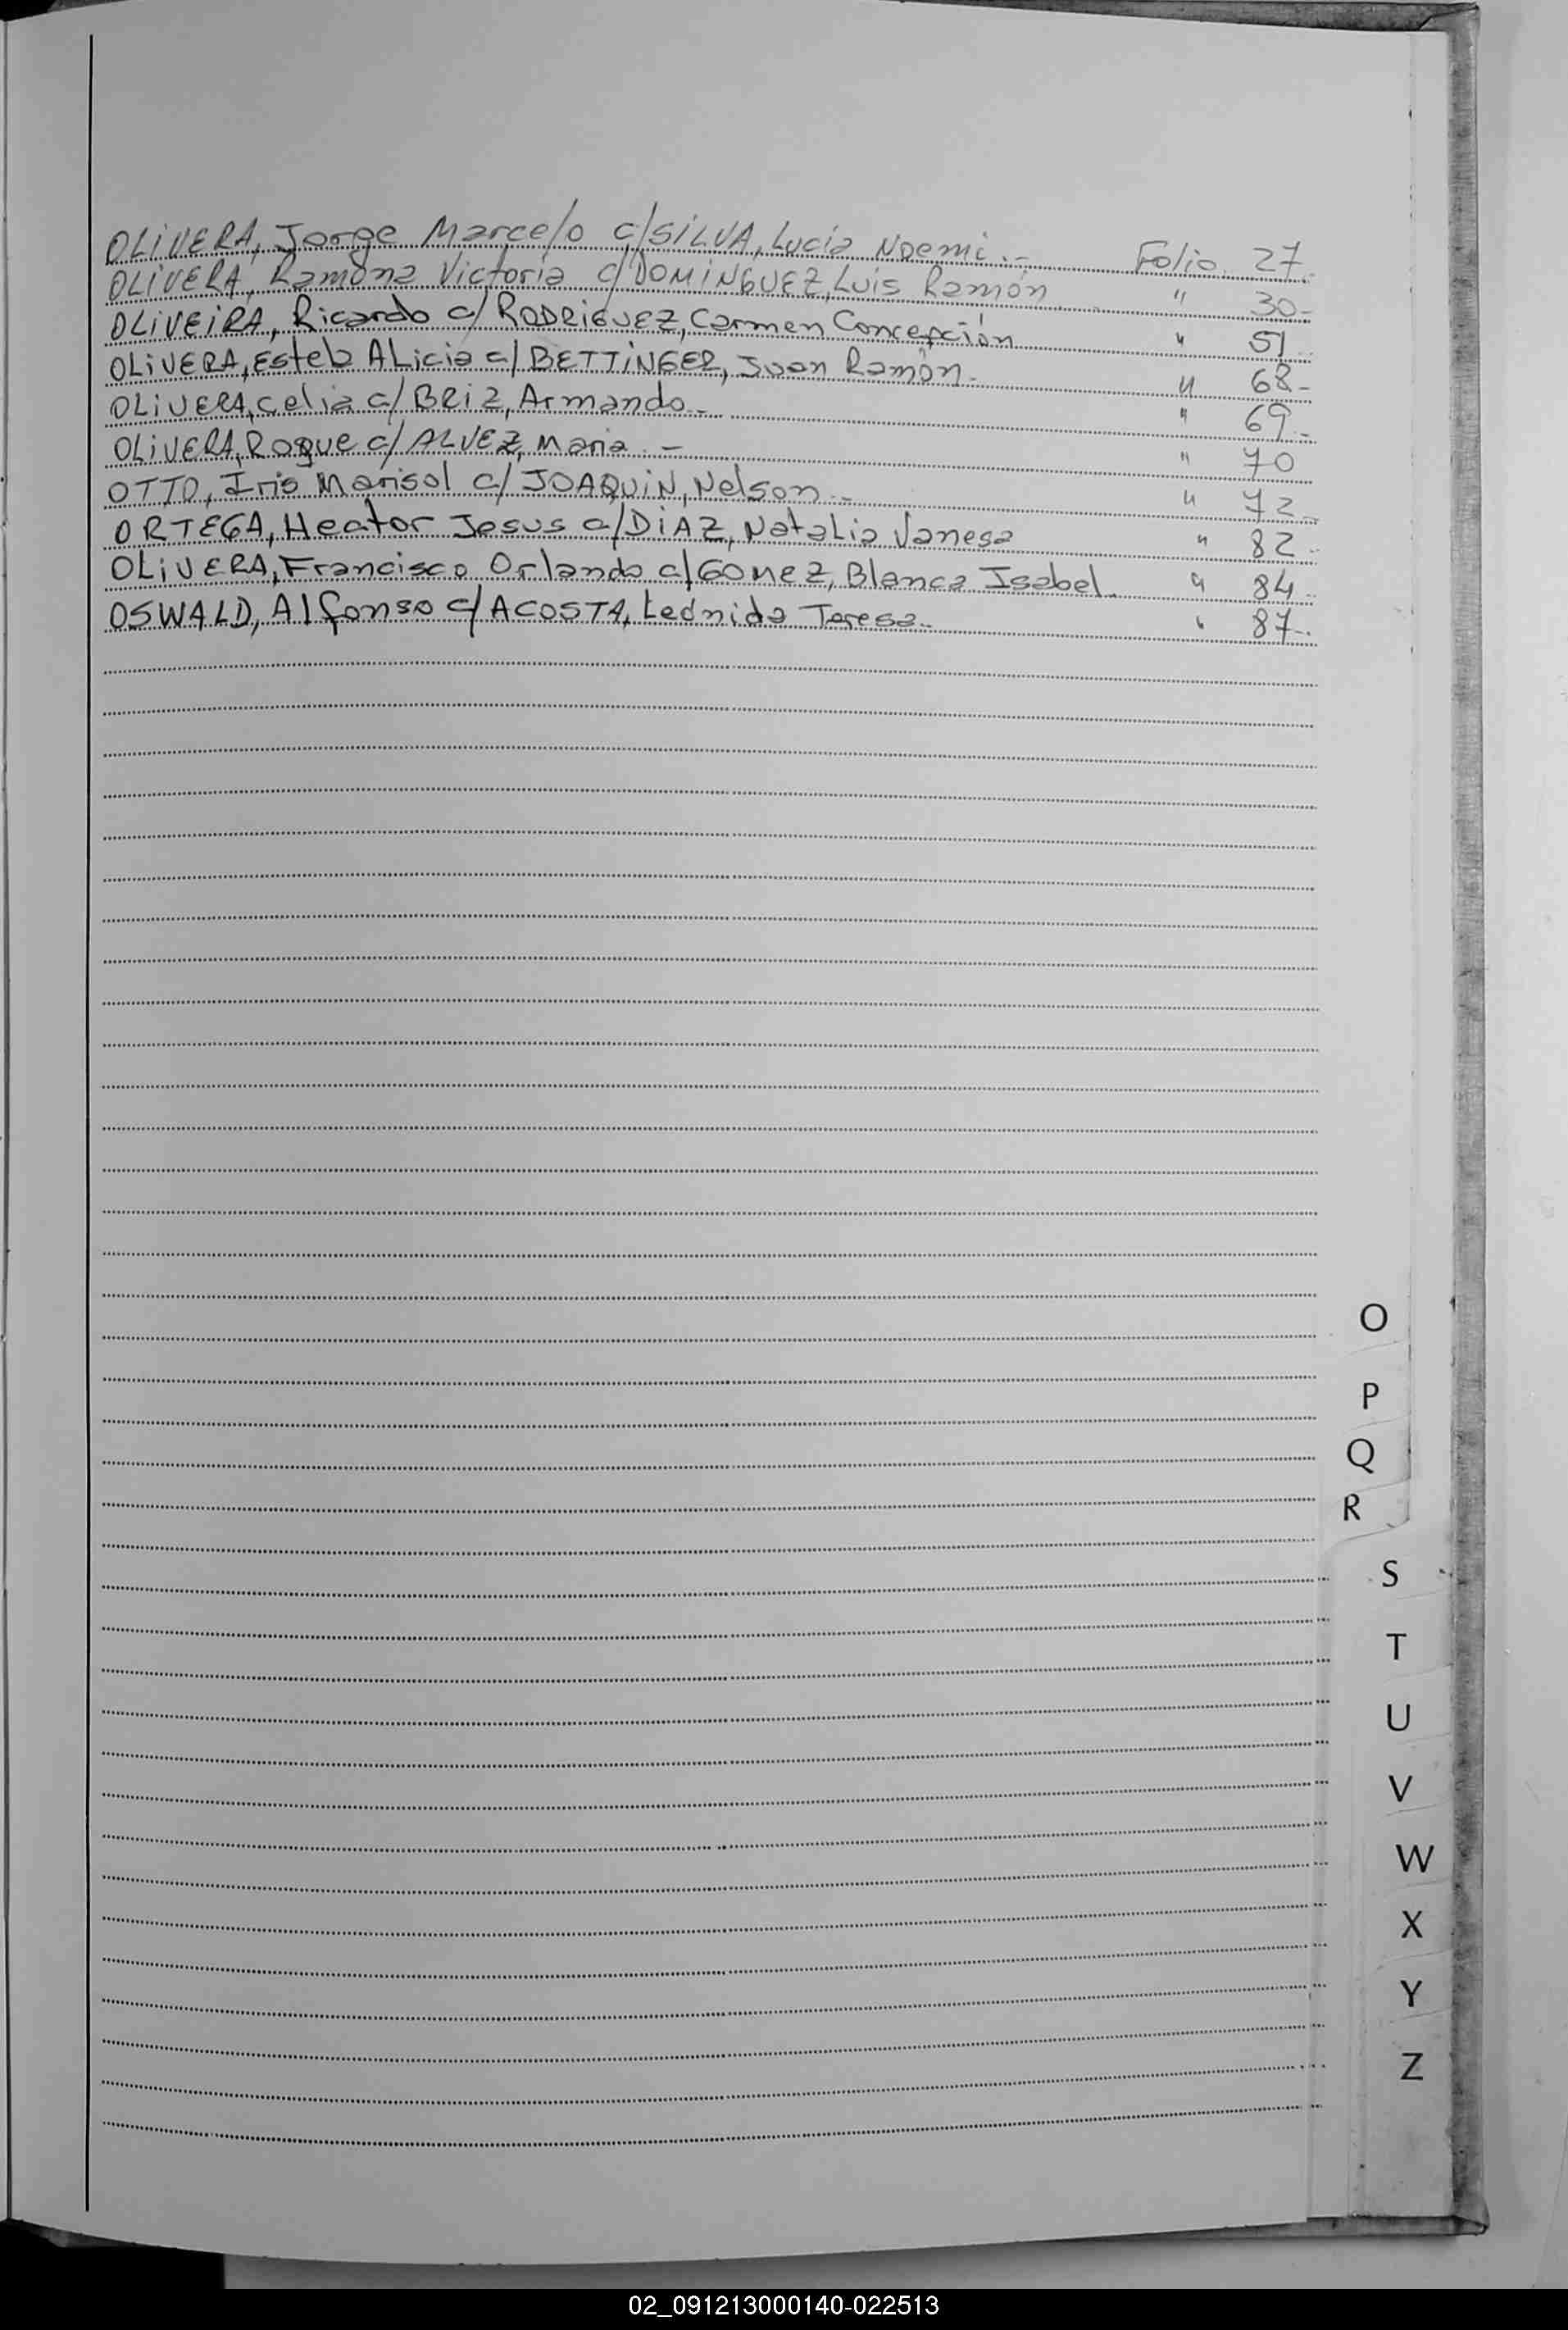 OLIVERA, Jorge Marcelo c/SILVA, Lucia Noemi.- Folio 27.
OLIVERA, Ramona Victoria c/DOMINGUEZ, Luis Ramón " 30-
OLIVEIRA, Ricardo c/ RODRIGUEZ, Carmen Concepción " 51
OLIVERA, Estela ALicia c/ BETTINGER, Juan Ramón- " 68-
OLIVERA, Celia c/ BRIZ, Armando- " 69-
OLIVERA, Roque c/ ALVEZ, Maria.- " 70
OTTO, Iris Marisol c/ JOAQUIN, Nelson.- " 72-
ORTEGA, Hector Jesus c/DIAZ, NataLia Vanesa " 82-
OLIVERA, Francisco Orlando c/GOMEZ, Blanca Isabel. " 84-
OSWALD, Alfonso c/ ACOSTA, Leónida Teresa- " 87-.
O
P
Q
R
S
T
U
V
W
X
Y
Z
02_091213000140-022513